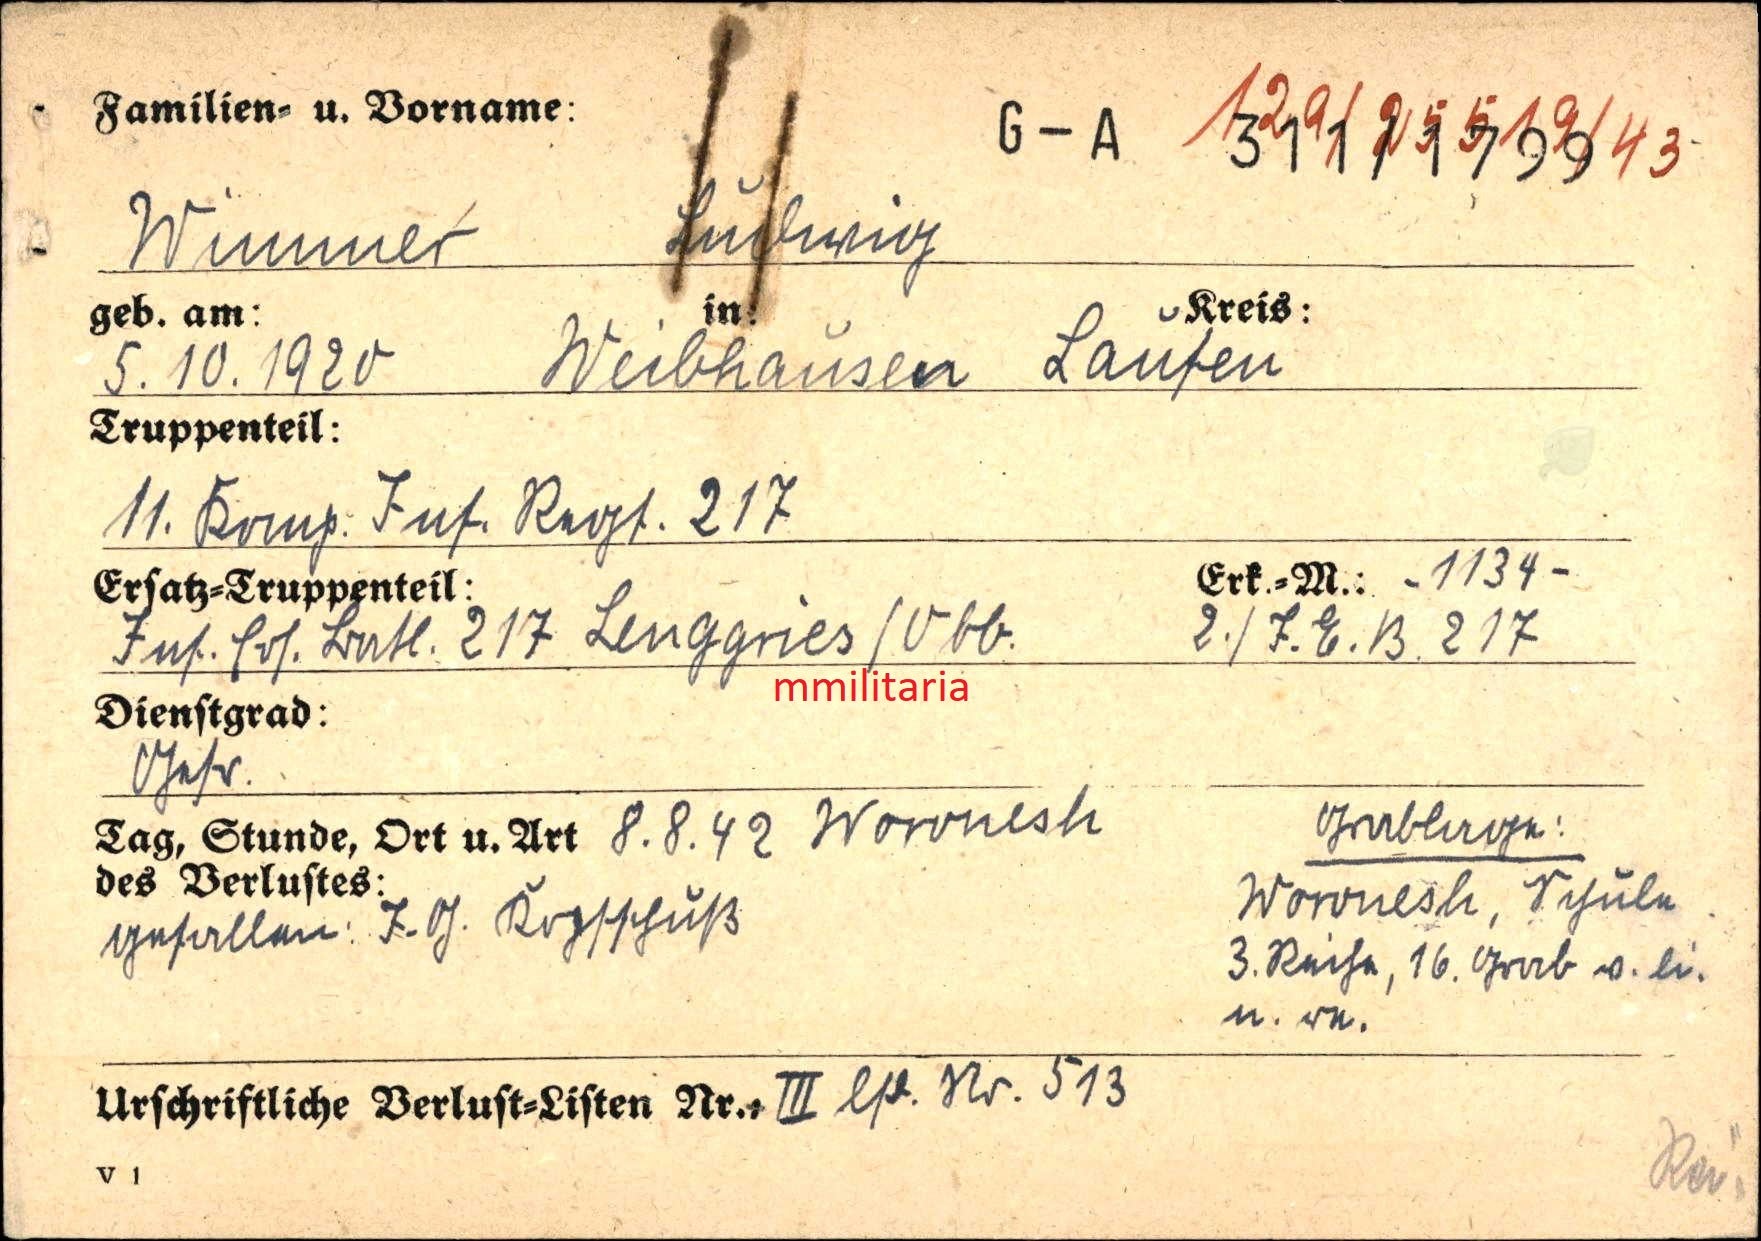 Familien- u. Vorname:
G-A 311/1799
129/25519/43
Wimmer Ludwig
geb. am: in: Kreis:
5.10.1920 Weibhausen Laufen
Truppenteil:
11. Komp. Inf. Regt. 217
Ersatz-Truppenteil: Erk.-M.: -1134-
Inf. Ers. Batl. 217 Lenggries/Obb. 2./I.E.B. 217
mmilitaria
Dienstgrad:
Gefr.
Tag, Stunde, Ort u. Art 8.8.42 Woronesh
des Verlustes:
gefallen: I.G. Kopfschuß
Grablage:
Woronesh, Schule
3. Reihe, 16. Grab v. li.
n. re.
Urschriftliche Verlust-Listen Nr.: III lfd. Nr. 513
V 1